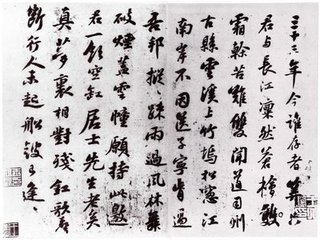 三十三年今誰存者算只
君与長江凛然蒼檜
霜榦苦難雙聞道司州
古縣雲溪上竹塢松窓江
南岸不因送子寧肯過
吾邦摐〻踈雨過風林舞
破煙蓋雲幢願持此邀
君一飲空缸居士先生老矣
真夢裏相對殘釭歌聲
斷行人未起船鼓已逢〻